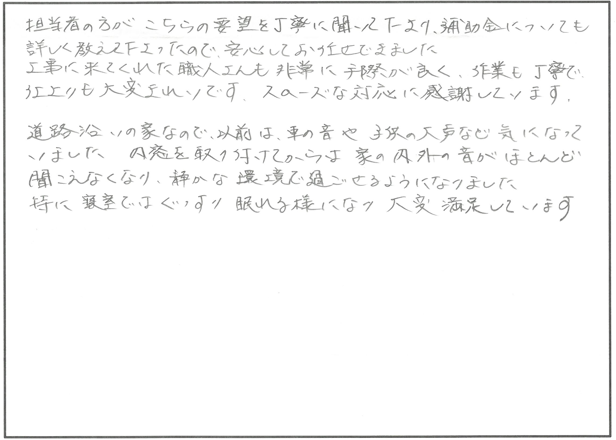 担当者の方が こちらの要望を丁寧に聞いて下さり、補助金についても
詳しく教えて下さったので、安心してお任せできました
工事に来てくれた職人さんも 非常に 手際が良く、作業も丁寧で、
仕上りも大変きれいです。スムーズな対応に感謝しています。
道路沿いの家なので、以前は、車の音や 子供の大声など 気になって
いました 内窓を取り付けてからは 家の内外の音が ほとんど
聞こえなくなり、静かな 環境で過ごせるようになりました
特に 寝室ではぐっすり 眠れる様になり 大変 満足しています